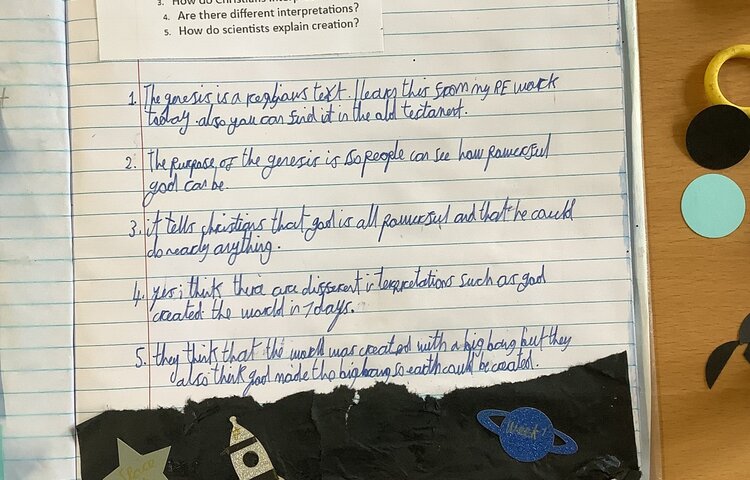 3. How do Christians interp
4. Are there different interpretations?
5. How do scientists explain creation?
1. The genesis is a religious text. I learn this from my RE work
today. also you can find it in the old testament.
2. the purpose of the genesis is so people can see how powerful
god can be.
3. it tells christians that god is all powerful and that he could
do nearly anything.
4. yes i think there are different interpretations such as god
created the world in 7 days.
5. they think that the world was created with a big bang but they
also think god made the big bang so earth could be created.
Space
Week 1